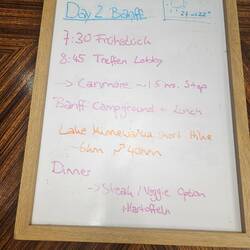 Day 2 Banff
21 - 22°
7:30 Frühstück
8:45 Treffen Lobby
-> Canmore ~ 15 min. Stop
Banff Campground + Lunch
Lake Minnewanka short Hike
~ 6km ~ 40hm
Dinner
-> Steak / Veggie Option
+ Kartoffeln